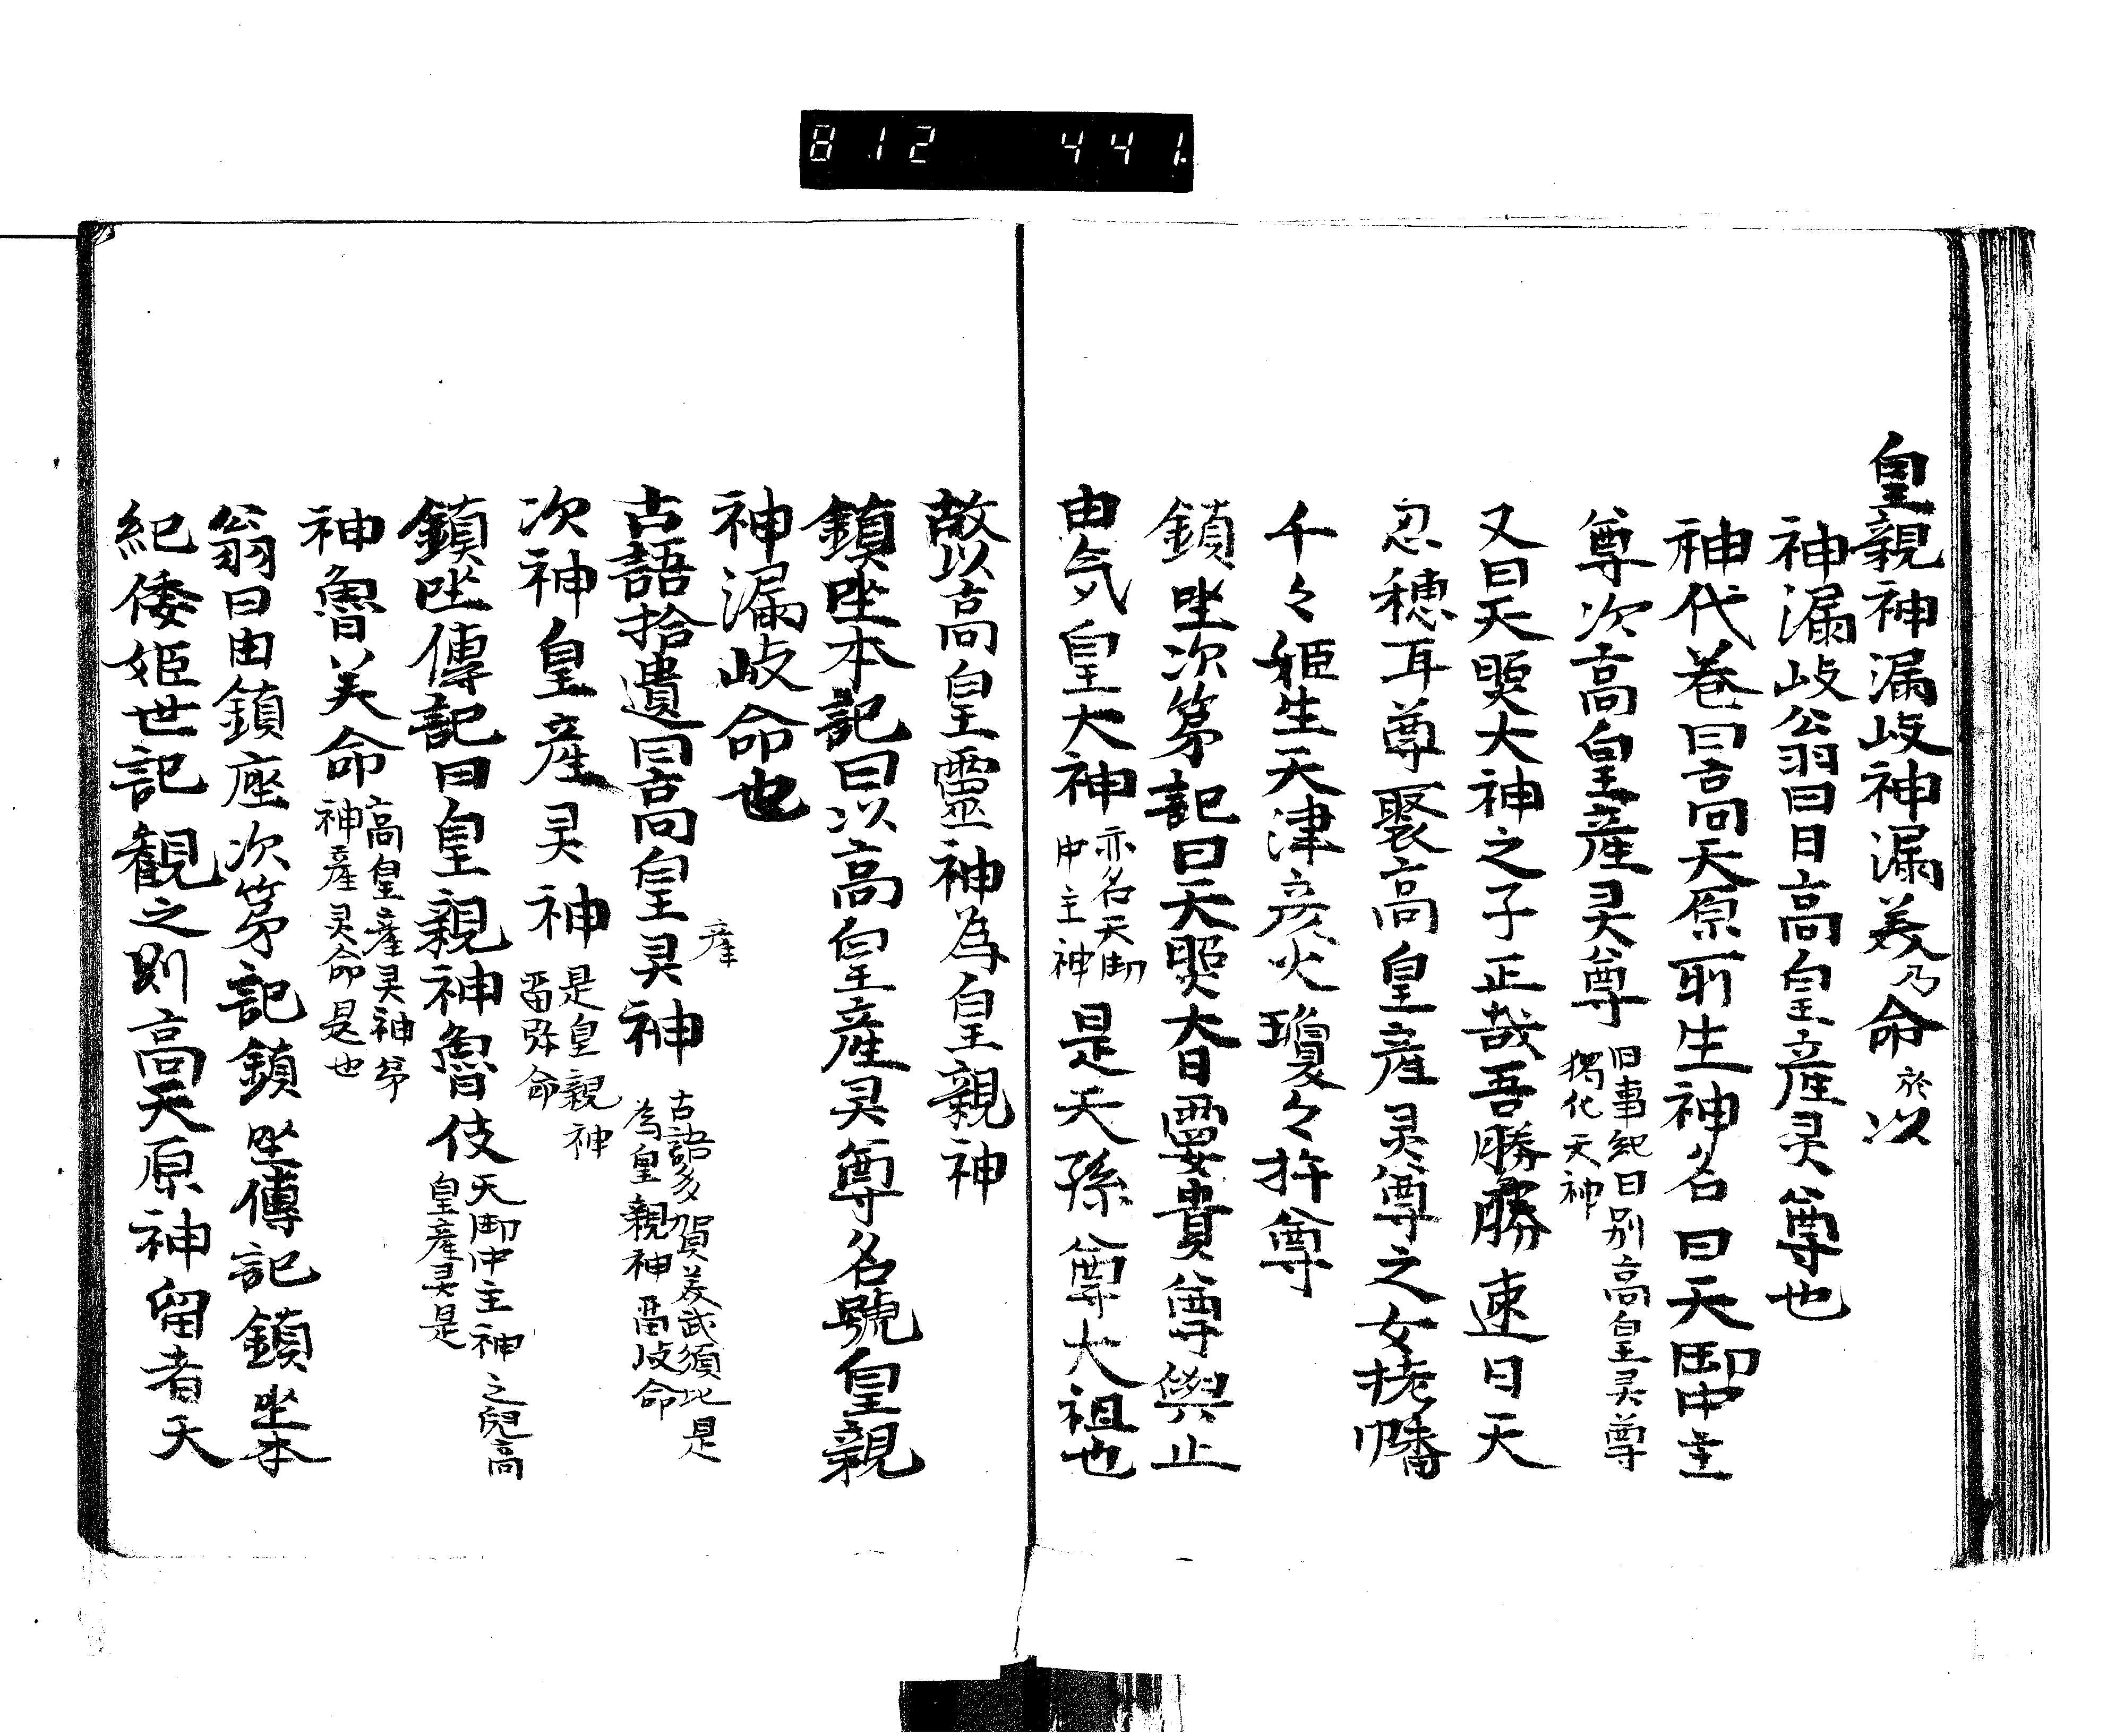 812 441
皇親神漏岐神漏義乃命於以
神漏岐公翁曰日高皇産灵尊也
神代巻曰高天原所生神名曰天御中主
尊次高皇産灵尊旧事紀曰別高皇灵尊
獨化天神
又曰天照大神之子正哉吾勝勝速日天
忍穂耳尊娶高皇産灵尊之女栲幡
千々姫生天津彦火瓊々杵尊
鎮坐次第記曰天照大日孁貴尊與止
由気皇大神亦名天御
中主神是天孫尊大祖也
故以高皇靈神為皇親神
鎮坐本記曰以高皇産灵尊名號皇親
神漏岐命也
古語拾遺曰高皇産灵神古語多賀美武須比是
為皇親神畱岐命
次神皇産灵神是皇親神
畱弥命
鎮坐傳記曰皇親神魯伎天御中主神之兒高
皇産灵是
神魯美命高皇産灵神弟
神産灵命是也
翁曰由鎮座次第記鎮坐傳記鎮坐本
紀倭姫世記観之則高天原神留者天